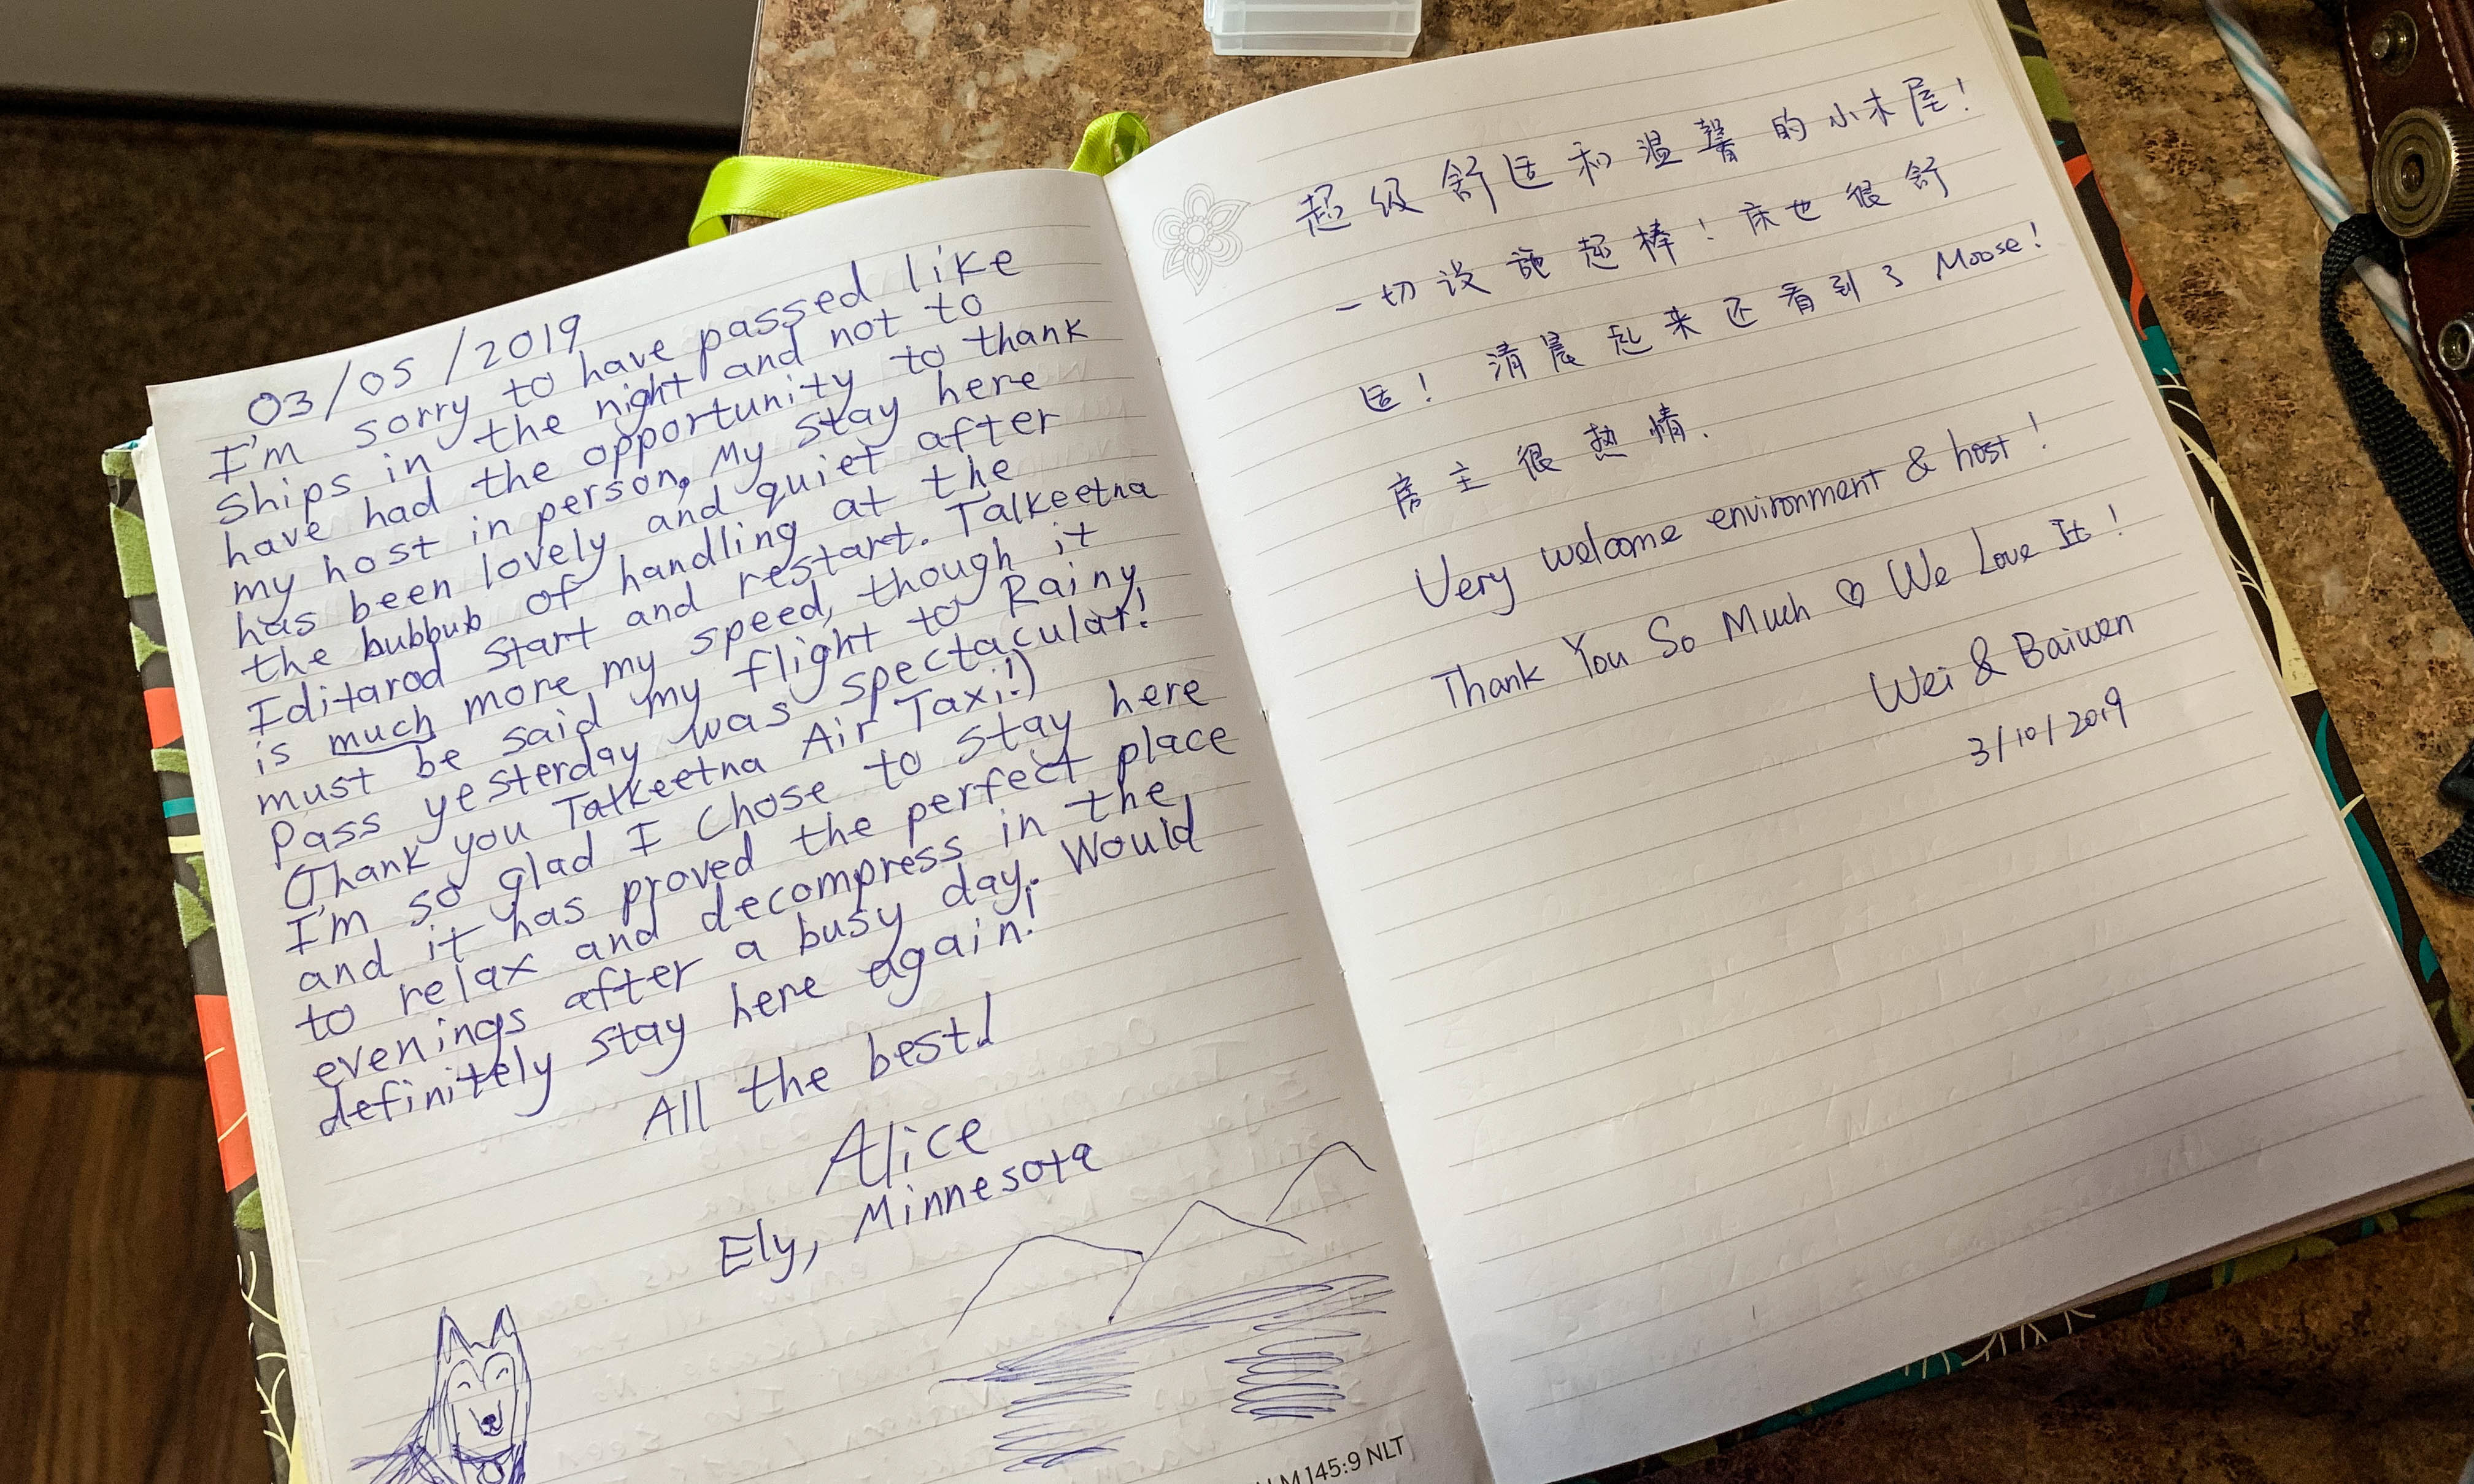 03/05/2019
I'm sorry to have passed like
ships in the night and not to
have had the opportunity to thank
my host in person. My stay here
has been lovely and quiet after
the bubbub of handling at the
Iditarod start and restart. Talkeetna
is much more my speed, though it
must be said my flight to Rainy
Pass yesterday was spectacular!
(Thank you Talkeetna Air Taxi!)
I'm so glad I chose to stay here
and it has proved the perfect place
to relax and decompress in the
evenings after a busy day. Would
definitely stay here again!
All the best!
Alice
Ely, Minnesota
145:9 NLT
超级舒适和温馨的小木屋!
一切设施超棒!床也很舒
适! 清晨起来还看到了Moose!
房主很热情.
Very welcome environment & host!
Thank You So Much ♡ We Love It!
Wei & Baiwen
3/10/2019